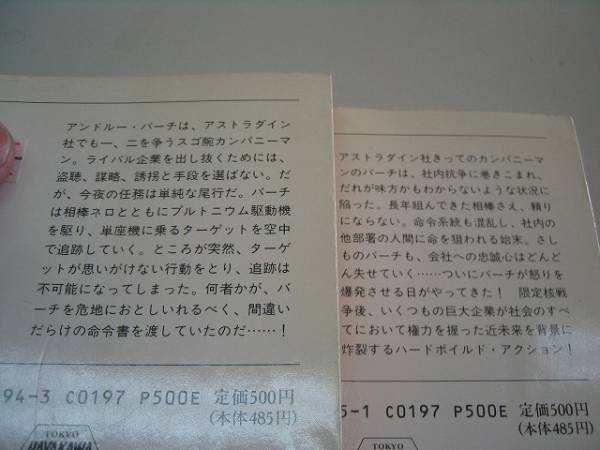 アンドルー・バーチは、アストラダイン
社でも一、二を争うスゴ腕カンパニーマ
ン。ライバル企業を出し抜くためには、
盗聴、謀略、誘拐と手段を選ばない。だ
が、今夜の任務は単純な尾行だ。バーチ
は相棒ネロとともにプルトニウム駆動機
を駆り、単座機に乗るターゲットを空中
で追跡していく。ところが突然、ターゲ
ットが思いがけない行動をとり、追跡は
不可能になってしまった。何者かが、バ
ーチを危地におとしいれるべく、間違い
だらけの命令書を渡していたのだ……！
94-3 C0197 P500E 定価500円
(本体485円)
TOKYO
HAYAKAWA
アストラダイン社きってのカンパニーマ
ンのバーチは、社内抗争に巻きこまれ、
だれが味方かもわからないような状況に
陥った。長年組んできた相棒さえ、頼り
にならない。命令系統も混乱し、社内の
他部署の人間に命を狙われる始末。さし
ものバーチも、会社への忠誠心はどんど
ん失せていく……ついにバーチが怒りを
爆発させる日がやってきた！　限定核戦
争後、いくつもの巨大企業が社会のすべ
てにおいて権力を握った近未来を背景に
炸裂するハードボイルド・アクション！
5-1 C0197 P500E 定価500円
(本体485円)
TOKYO